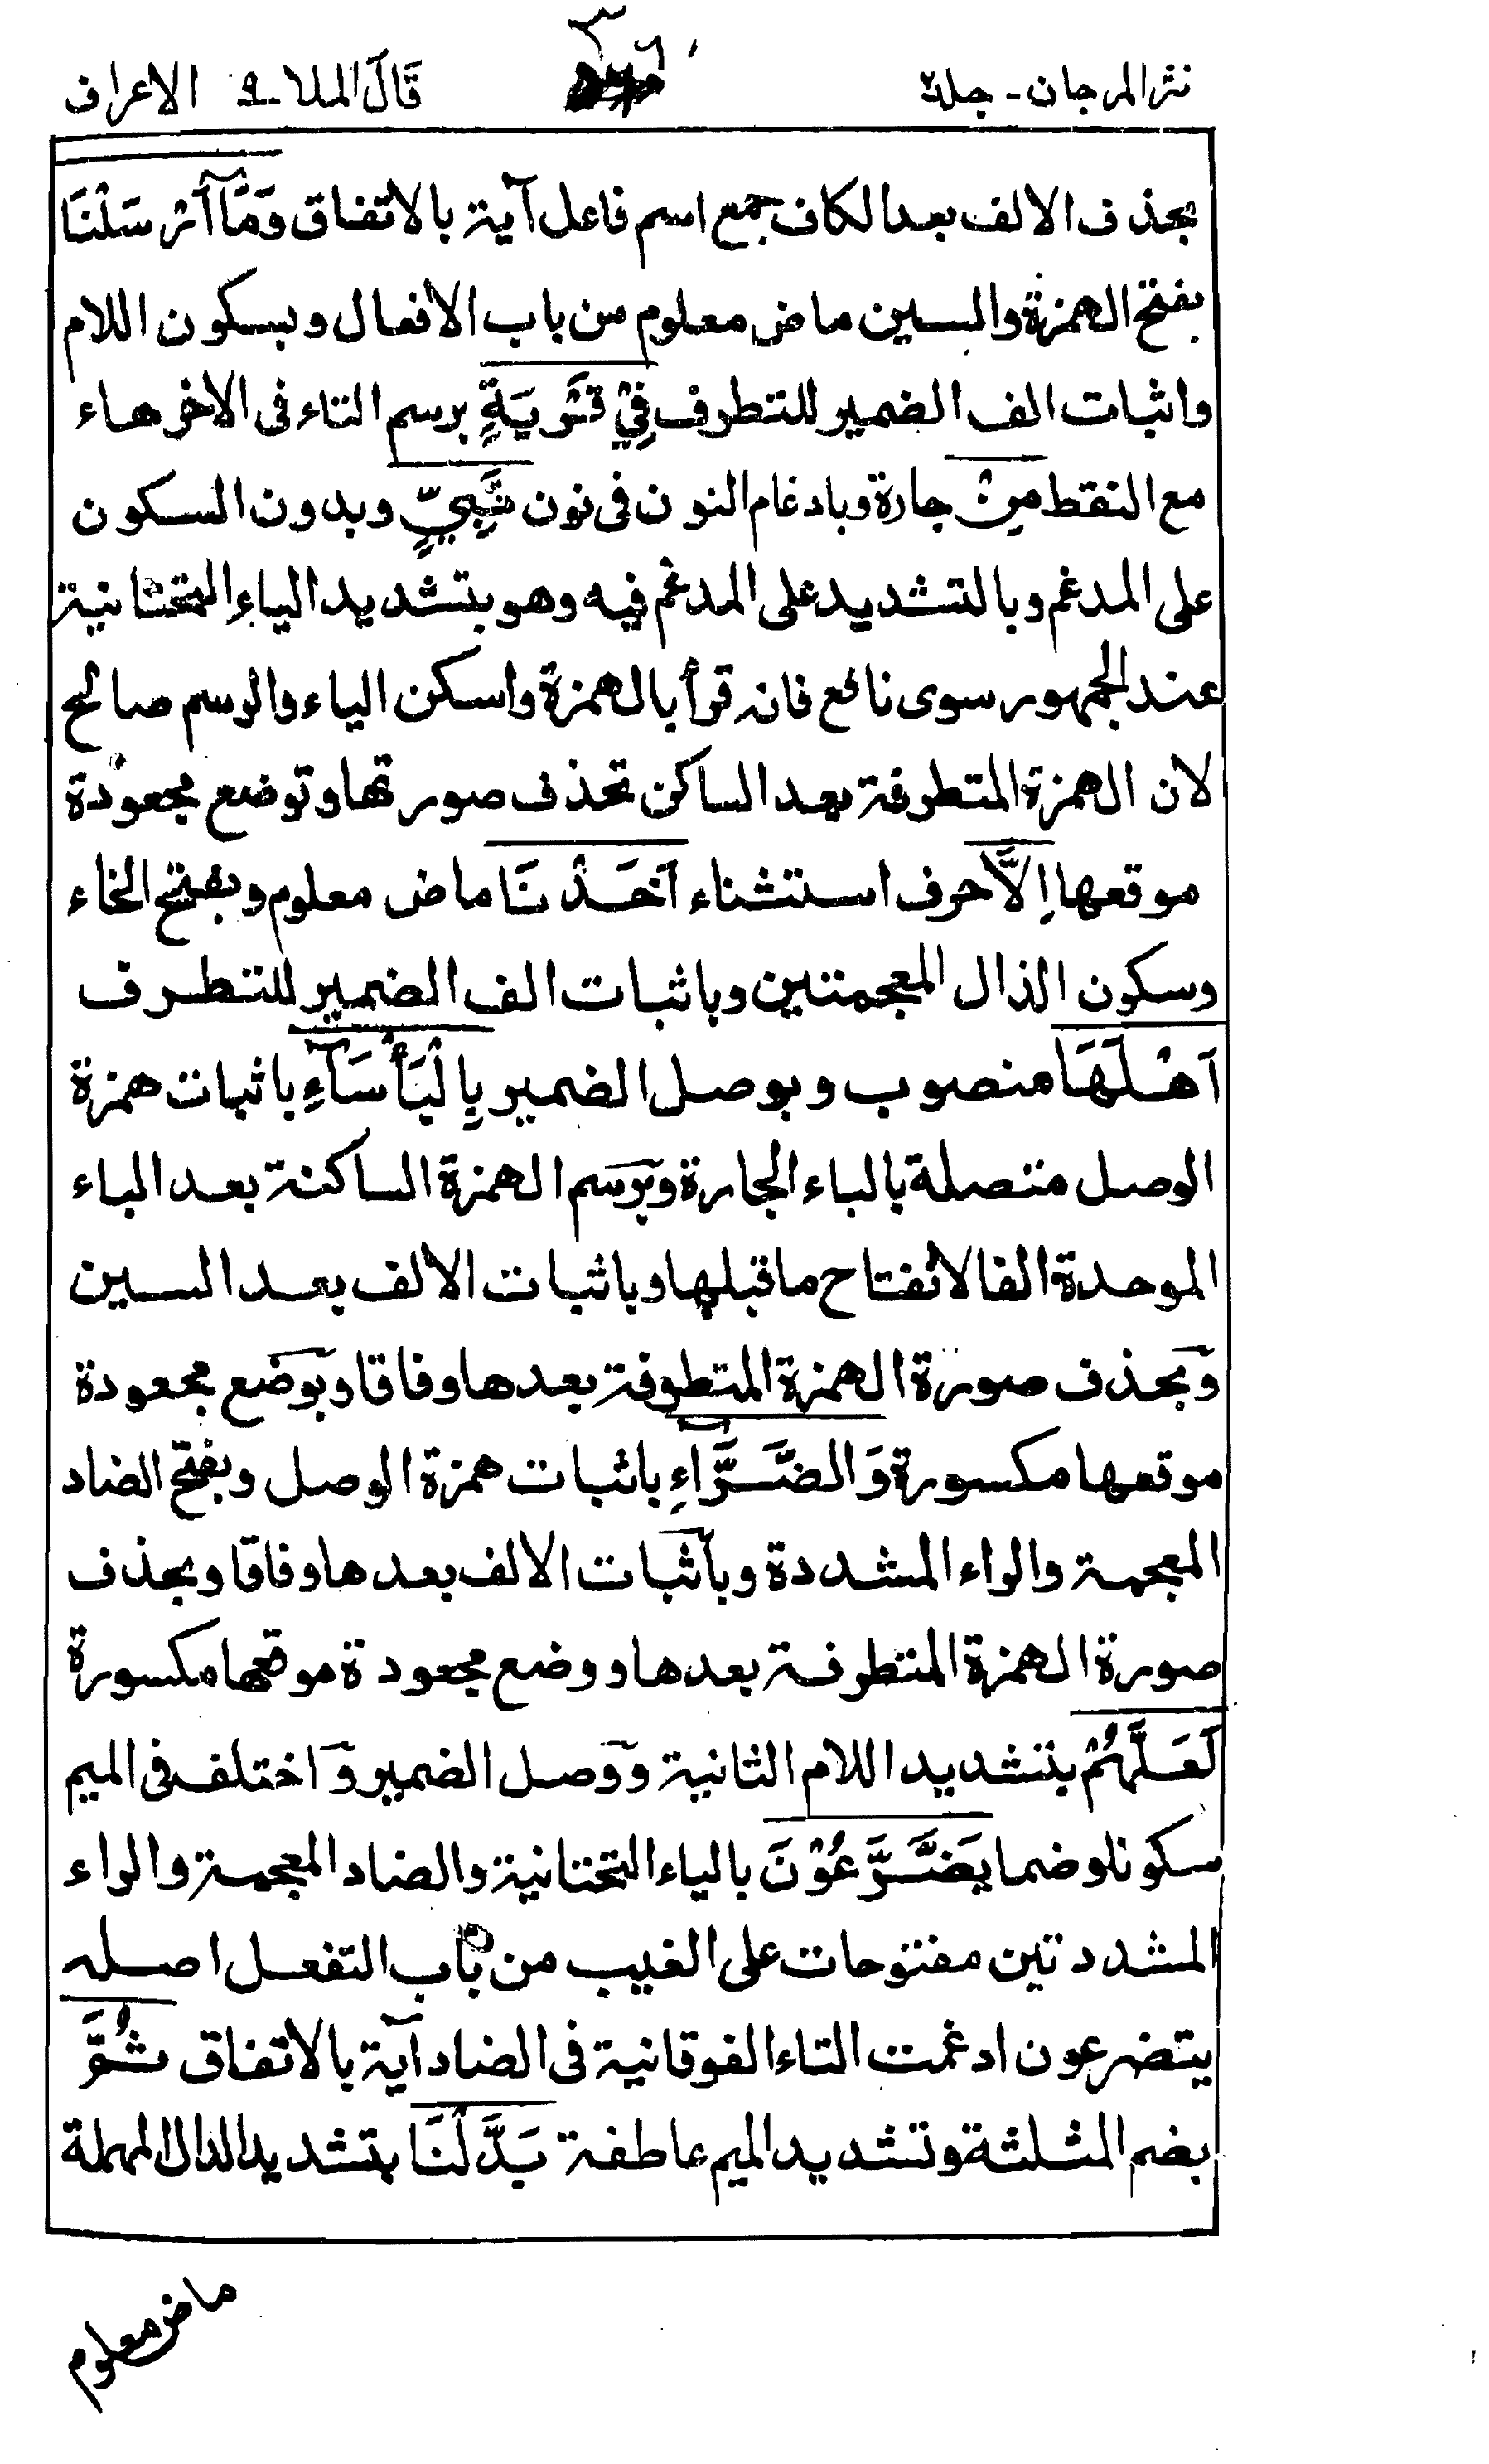 نثر المرجان - جلد٢ قَالَ الملا - ٩ الاعراف
بحذف الالف بعد الكاف جمع اسم فاعل آية بالاتفاق وَمَآ اَرْسَلْنَا
بفتح الهمزة والسين ماض معلوم من باب الافعال وبسكون اللام
واثبات الف الضمير للتطرف فِيْ قَرْيَةٍ برسم التاء فى الاخر هاء
مع النقط مِنْ جارة وبادغام النون فى نون نَّبِيٍّ وبدون السكون
على المدغم وبالتشديد على المدغم فيه وهو بتشديد الياء التحتانية
عند الجمهور سوى نافع فانه قرأ بالهمزة واسكن الياء والرسم صالح
لان الهمزة المتطرفة بعد الساكن تحذف صورتها وتوضع مجعودة
موقعها اِلَّا حرف استثناء اَخَذْنَا ماض معلوم وبفتح الخاء
وسكون الذال المعجمتين وباثبات الف الضمير للتطرف
اَهْلَهَا منصوب وبوصل الضمير بِالْبَأْسَآءِ باثبات همزة
الوصل متصلة بالباء الجارة وبرسم الهمزة الساكنة بعد الباء
الموحدة الفا لانفتاح ما قبلها وباثبات الالف بعد السين
وبحذف صورة الهمزة المتطرفة بعدها وفاقا وبوضع مجعودة
موقعها مكسورة وَالضَّرَّآءِ باثبات همزة الوصل وبفتح الضاد
المعجمة والراء المشددة وباثبات الالف بعدها وفاقا وبحذف
صورة الهمزة المتطرفة بعدها ووضع مجعودة موقعها مكسورة
لَعَلَّهُمْ بتشديد اللام الثانية ووصل الضمير واختلف فى الميم
سكونا وضما يَضَّرَّعُوْنَ بالياء التحتانية والضاد المعجمة والراء
المشددتين مفتوحات على الغيب من باب التفعل اصله
يتضرعون ادغمت التاء الفوقانية فى الضاد آية بالاتفاق ثُمَّ
بضم المثلثة وتشديد الميم عاطفة بَدَّلْنَا بتشديد الدال المهملة
ماض معلوم